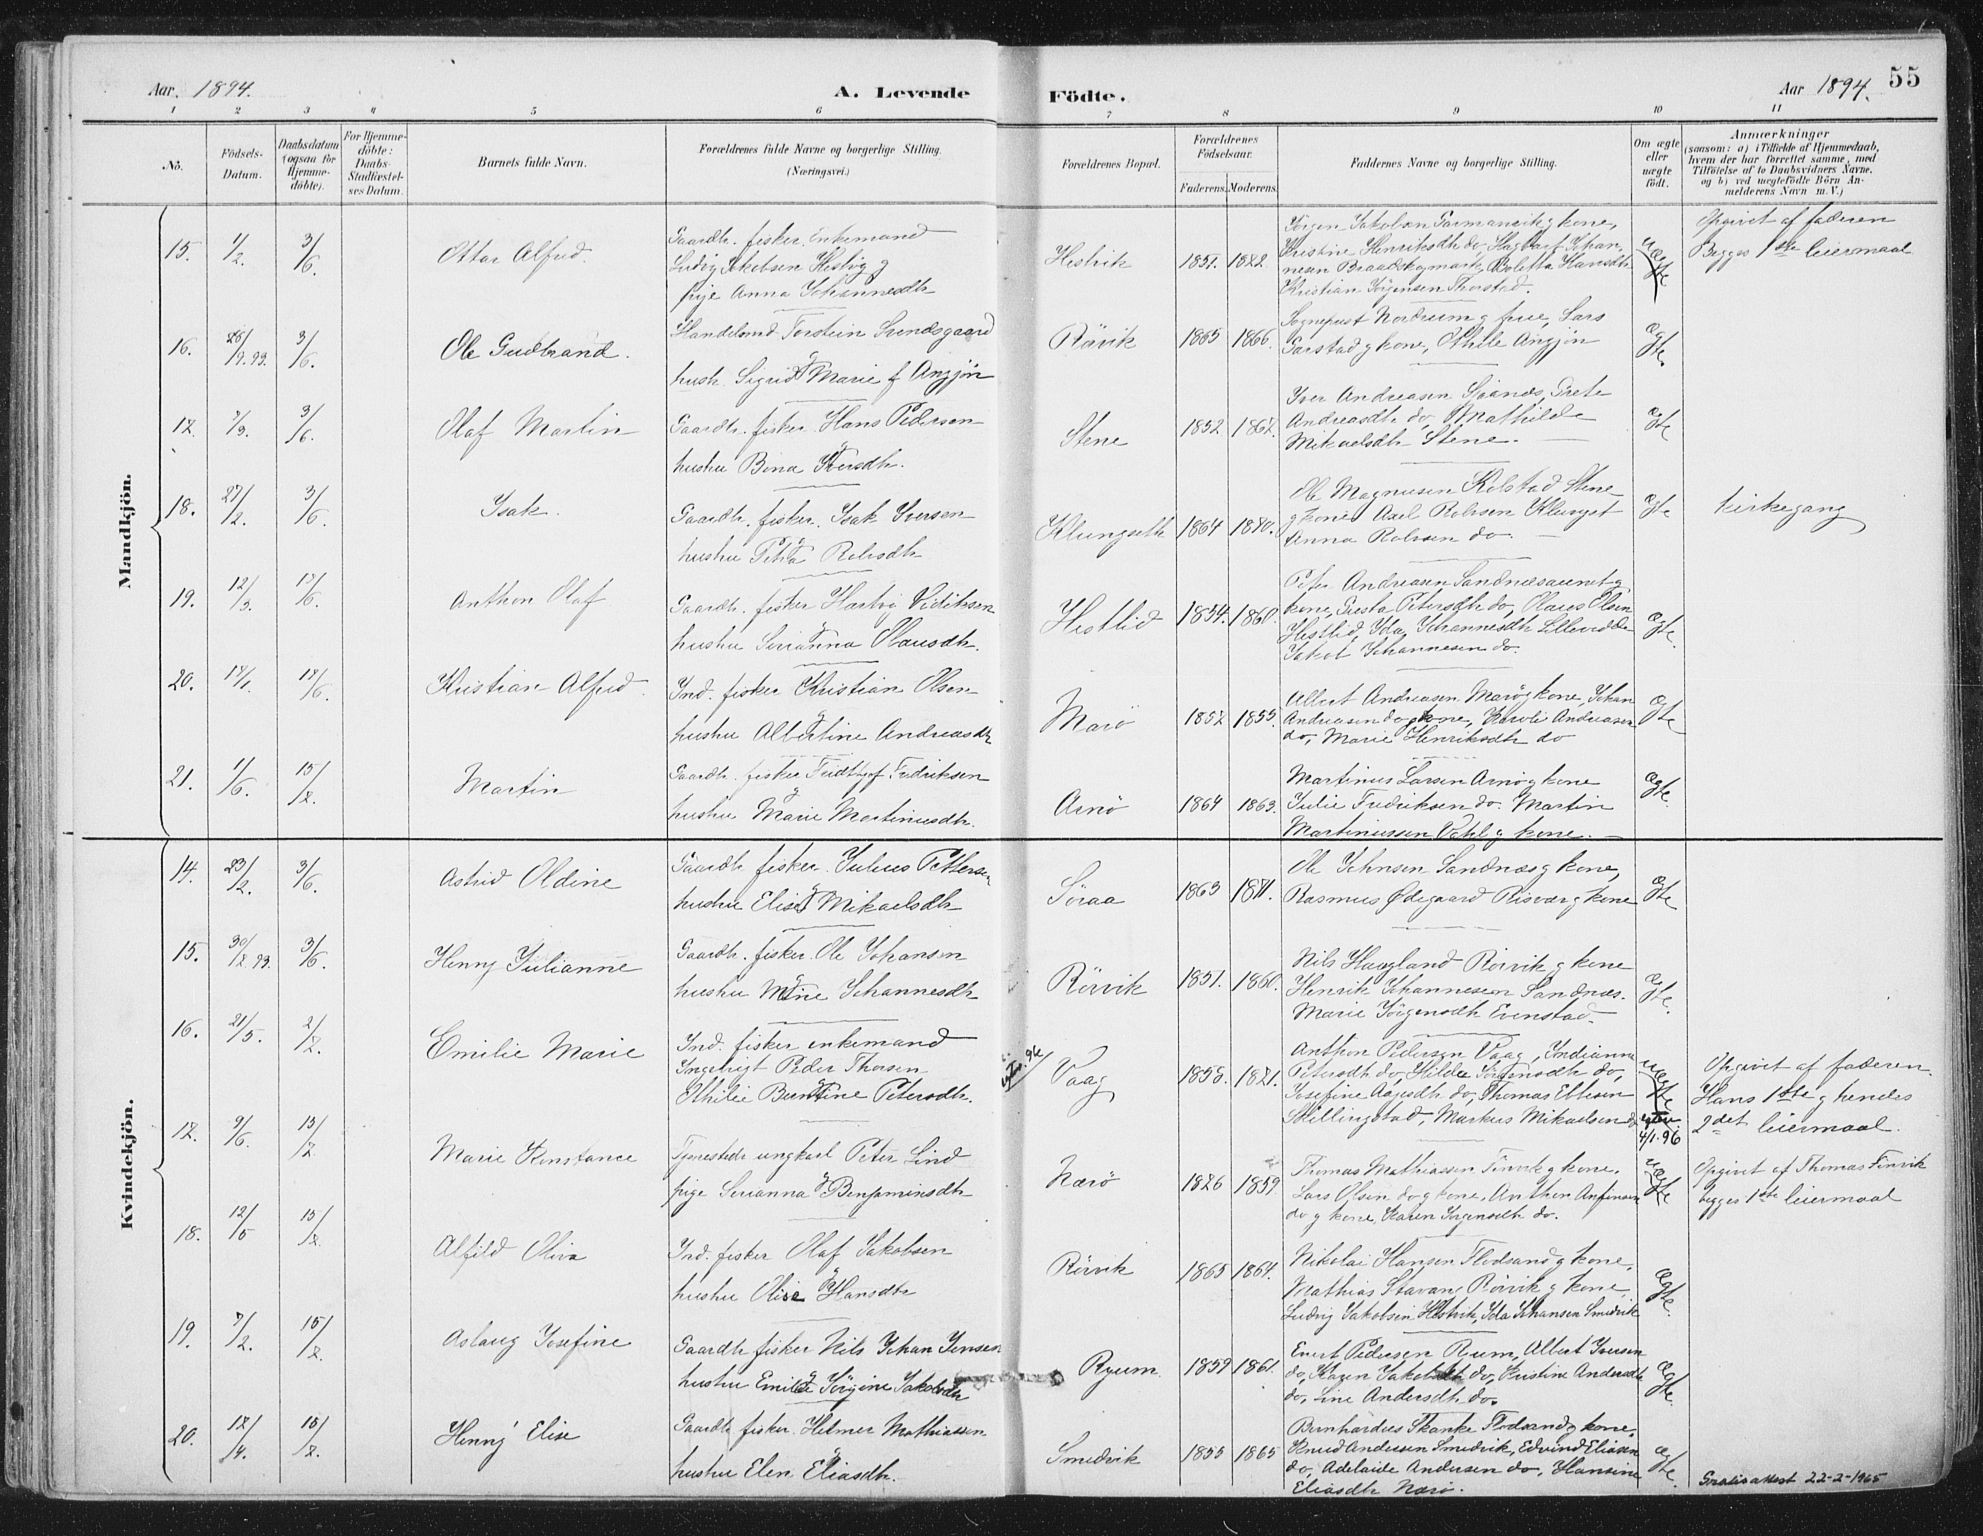 Aar. 1894. A. Levende Födte. Aar 1894. 55
1 2 3 4 5 6 7 8 9 10 11
No.
Födsels-Datum.
Daabsdatum (ogsaa for Hjemme-döbte).
For Hjemme-döbte: Daabs-Stadfæstel-ses Datum.
Barnets fulde Navn.
Forældrenes fulde Navne og borgerlige Stilling. (Næringsvei.)
Forældrenes Bopæl.
Forældrenes Födselsaar.
Faderens. Moderens.
Faddernes Navne og borgerlige Stilling.
Om ægte eller uægte födt.
Anmærkninger
(saasom: a) i Tilfælde af Hjemmedaab,
hvem der har forrettet samme, med
Tilföielse af to Daabsvidners Navne.
og b) ved uægtefödte Börn An-
melderens Navn m. V.)
Mandkjön.
15. 1/2. 3/6. Ottar Alfred.
Gaardb. fisker. Enkemand
Ludvig Jakobsen Hestvig g
pige Anna Johannesdtr
Hestvik 1851.
Kristian Jörgensen Thorstad.
uægte
Opgivet af faderen
Begges 1ste leiermaal
16. 3/6. Ole Gudbrand.
Handelsmd Torstein Svendsgaard
hustr. Sigrid Marie f Angjön
Rövik 1865 1866.
Sogneprest Nordrum g frue, Lars
Garstad g kone, Angjön
Ægte
17. 7/3. 3/6. Olaf Martin
Gaardb. fisker Hans Pedersen
hustru Bina Iversdtr.
Stene 1852 1867.
Iver Andreasen Grete
Andreasdtr do, Mathilde
Mikaelsdtr Stene.
ægte
18. 27/2. 3/6. Isak.
Gaardb. fisker. Isak Iversen
hustru Petra Rolvsdtr
Klungseth 1864 1870.
Ole Magnusen Kolstad Stene
g kone Axel Rolvsen
Anna Rolvsen do.
Ægte
kirkegang
19. 12/3. 17/6. Anthon Olaf
Gaardb. fisker Hartvig Didriksen
hustru Serianna Olausdtr.
Hestlid 1854. 1860.
Peter Andreasen Sandnesaunet g
kone, Petersdtr do, Olaus Olsen
Hestlid, Ida Johannesdtr
Jakob Johannesen do.
Ægte
20. 17/6. Kristian Alfred.
Ind. fisker Kristian Olsen
hustru Albertine Andreasdtr
Marö 1852 1855.
Albert Andreasen Marö g kone, Johan
Andreasen do g kone, Karoli Andreasen
do, Marie Henriksdtr do
Ægte
21. 1/6. 15/7. Martin
Gaardb. fisker Fridthjof Fredriksen
hustru Marie Martinusdtr.
Arnö 1864 1863.
Martinus Larsen Arnö g kone
Julie Fredriksen do. Martin
Martinussen Vahl g kone.
Ægte.
Kvindekjön.
14. 23/2. 3/6. Astrid Oldine
Gaardb. fisker. Julius Pettersen
hustru Elise Mikaelsdtr
Söraa 1863 1871.
Ole Johnsen Sandnæs g kone,
Rasmus Ødegaard Risvær g kone
Ægte
15. 3/6. Henny Julianne
Gaardb. fisker. Ole Johansen
hustru Mine Johannesdtr
Rörvik 1851. 1860.
Nils Haugland Rörvik g kone
Henrik Johannesen Sandnæs.
Marie Jörgensdtr Evenstad.
Ægte.
16. 21/5. 2/7. Emilie Marie
Ind. fisker enkemand
Ingebrigt Peder Thorsen
Petersdtr.
Vaag 1871.
Anthon Pedersen Vaag, Indianna
Petersdtr do, Hilda Jörgensdtr do,
Josefine do, Thomas Ellisen
Skillingstad, Markus Mikaelsen do
uægte
4/1.96
Opgivet af faderen.
Hans 1ste g hendes
2det leiermaal.
17. 9/6. 15/7. Marie Konstance
Tjenestedr ungkarl Peter Lind
pige Serianna Benjaminsdtr
Nærö 1859.
Thomas Mathiassen Finvik g kone.
Lars Olsen do g kone, Anthon Anfinsen
do g kone, Karen Jörgensdtr do.
uægte
Opgivet af Thomas Finvik
begges 1ste leiermaal
18. 12/5 15/7. Alfild Oliva
Ind. fisker Olaf Jakobsen
hustru Olise Hansdtr
Rörvik 1865 1864.
Nikolai Hansen Flodsand g kone,
Mathias Stavang Rörvik g kone
Ludvig Jakobsen Hestvik, Ida Johansen Smedvik
Ægte.
19. 7/2. 15/7. Aslaug Josefine
Gaardb fisker Nils Johan Jensen
hustru Emilie Jörgine Jakobsdtr
Ryum. 1859 1861.
Enert Pedersen Rum, Albert Iversen
do, Karen Jakobsdtr do, Kristine Andersdtr
do, Line Andersdtr do.
Ægte.
20. 15/7. Henny Elise
Gaardb. fisker. Helmer Mathiassen
hustru Elen Eliasdtr.
Smedvik 1855 1865
Bernhardus Skanke Flodsand g kone.
Knud Andersen Smedvik, Edvind Eliasen
do, Adelaide Andersen do, Hansine
Eliasdtr Nærö.
Ægte.
Gratisattest 22-2-1965